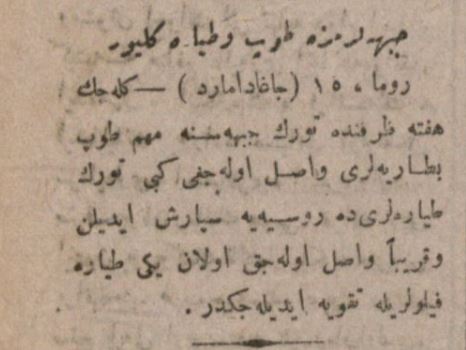 جبهه‌لرمزه طوپ و طياره كليور
روما ، ١٥ (جاغادامارد) — كله‌جك
هفته ظرفنده تورك جبهه‌سنه مهم طوپ
بطاريه‌لرى واصل اوله‌جغى كبى تورك
طياره‌لرى‌ده روسيه‌يه سپارش ايديلن
وقريباً واصل اوله‌جق اولان يكى طياره
فيلولريله تقويه ايديله‌جكدر .